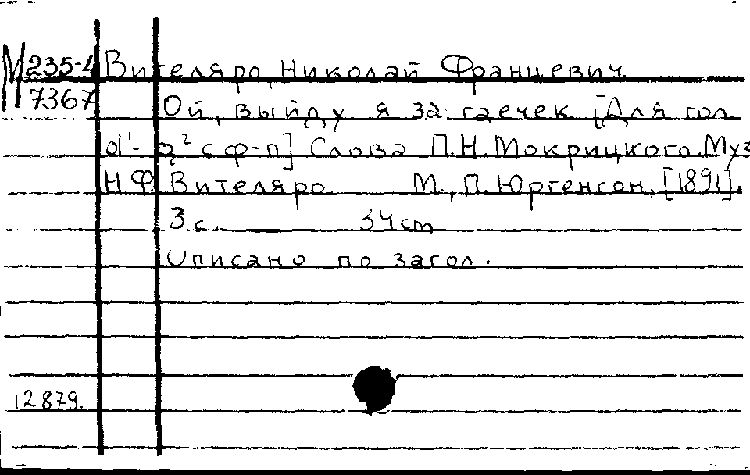 М 235-4 Вителяро, Николай Францевич.
7367 Ой, выйду я за гаечек [Для гол.
d¹-g² с ф-п] Слова П.Н. Мокрицкого. Муз
Н.Ф. Вителяро. М., П. Юргенсон, [1891].
3 с. 34 cm
Описано по загол.
12879.